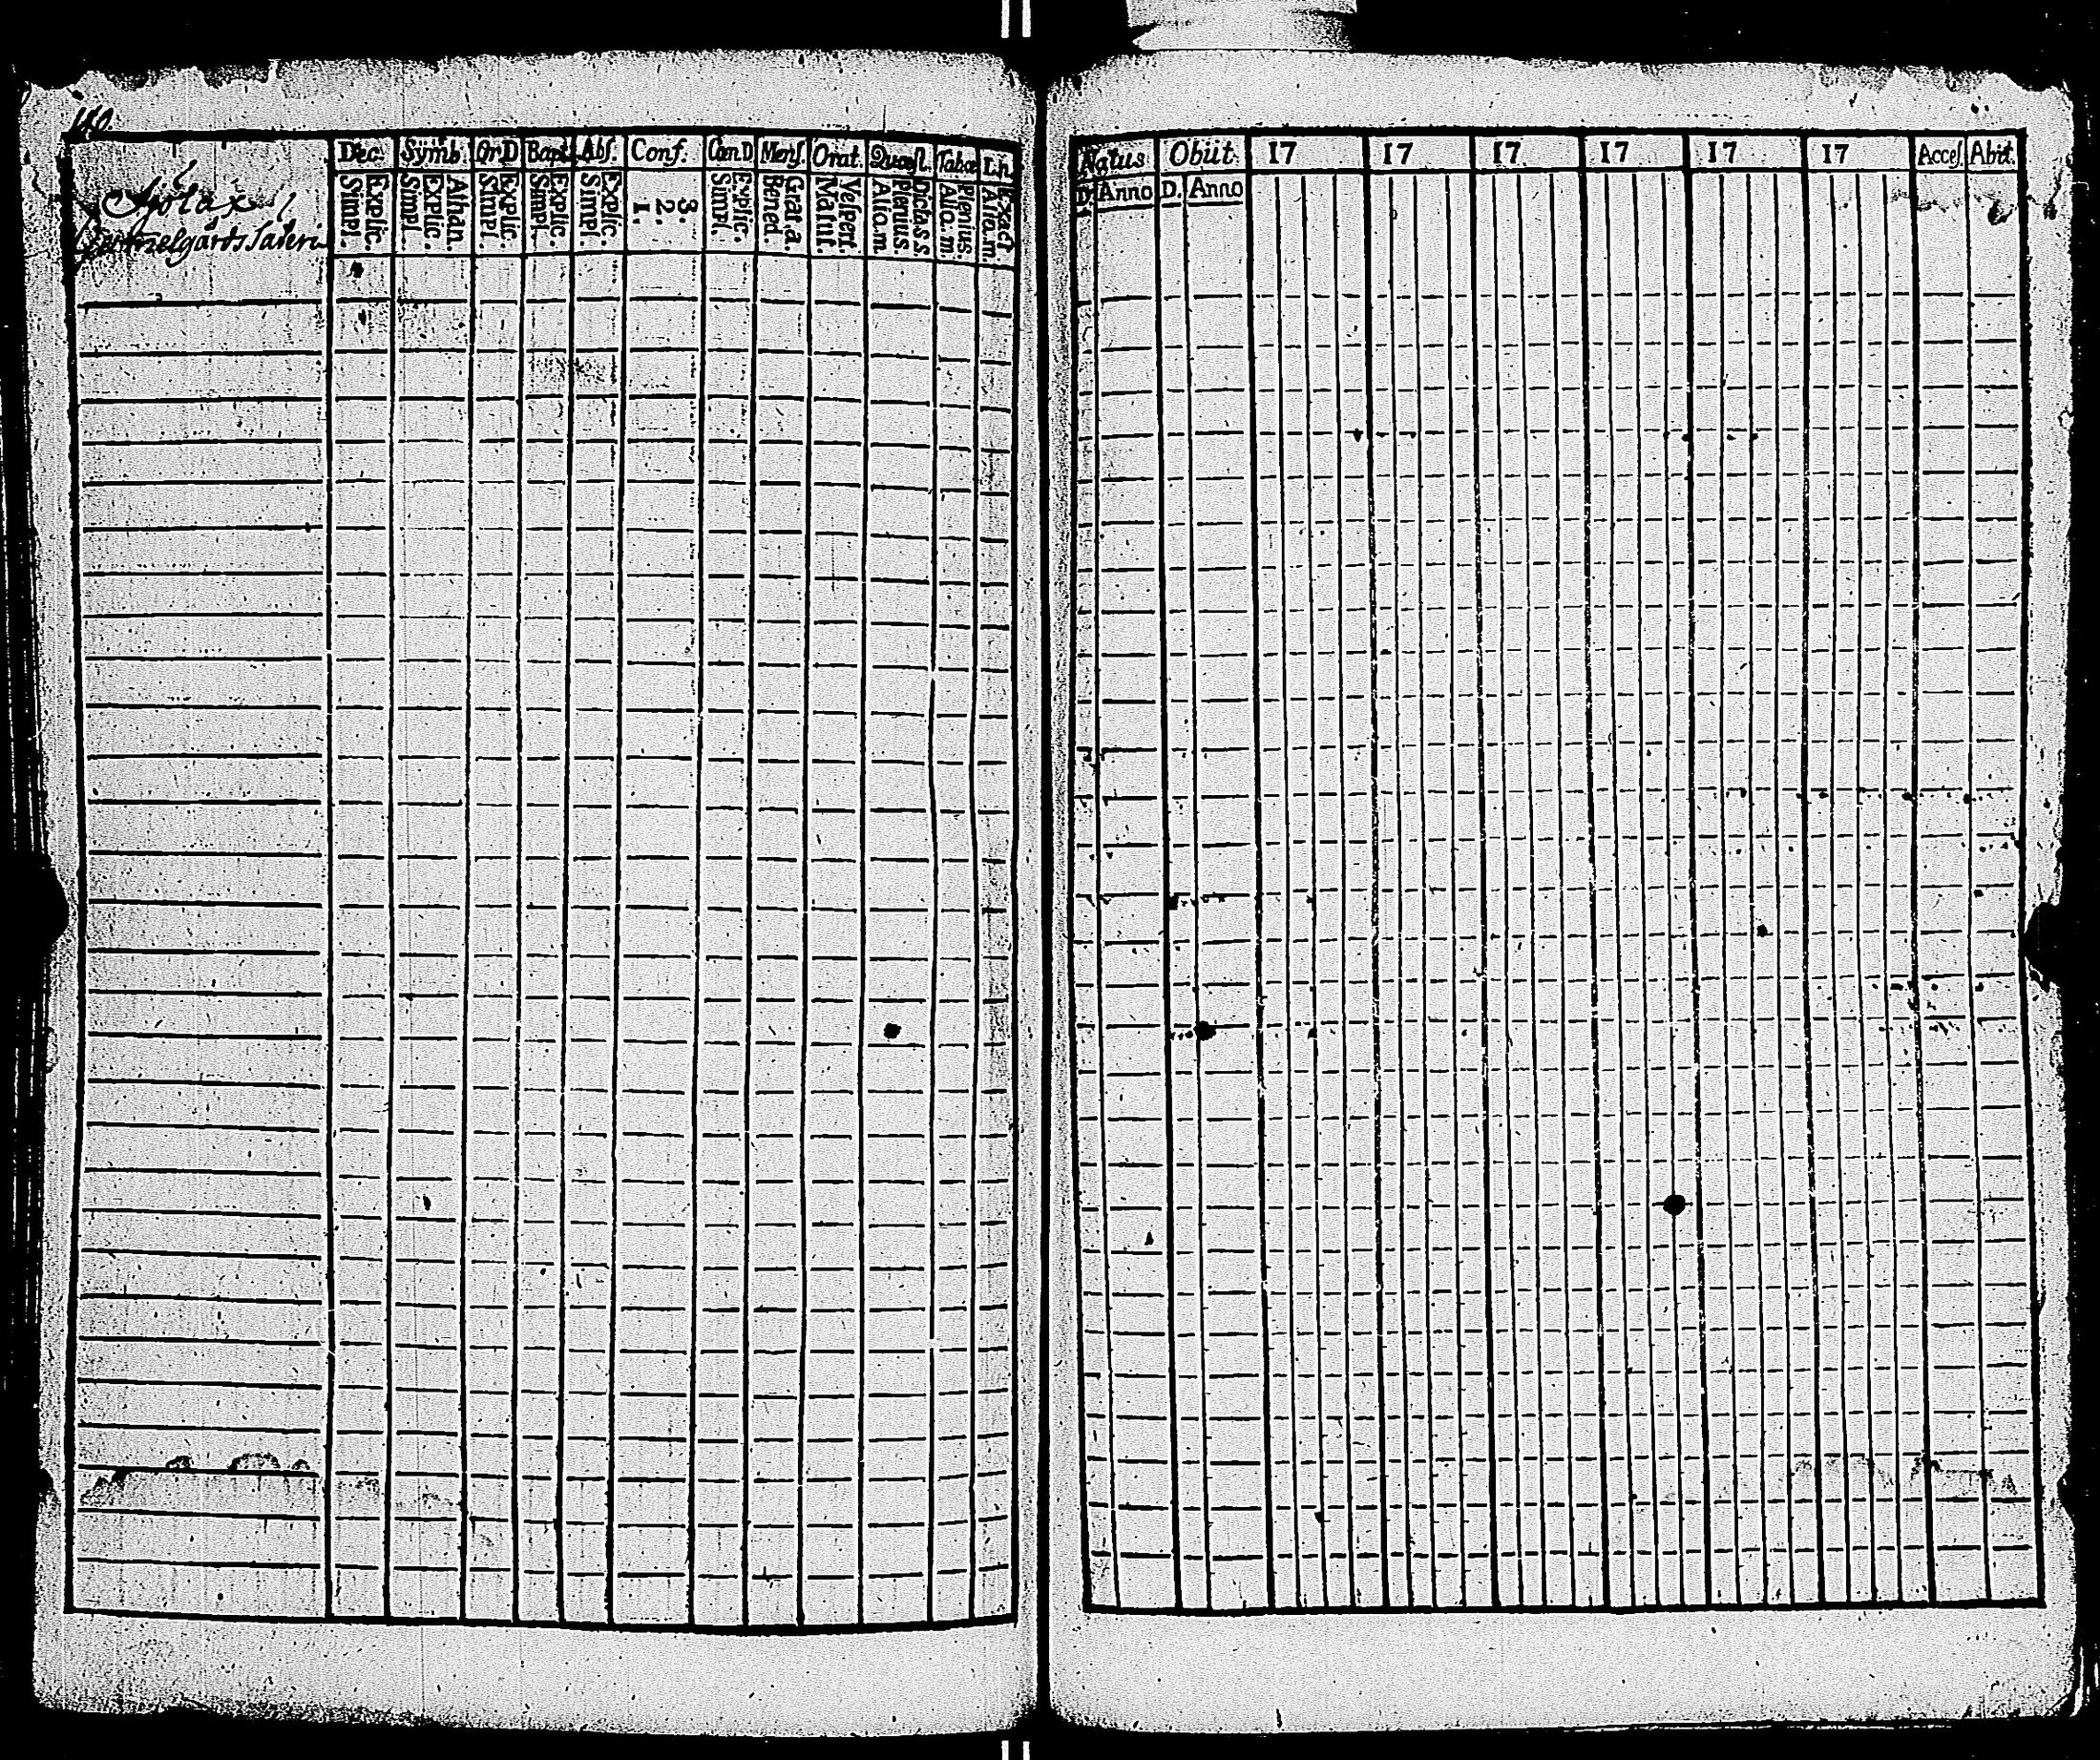 110
Dec. Symb. Or.D Bapt. Abs. Conf. Cœn.D Mens. Orat. Quæst. Tabœ Ln.
Sjölax
Säteri
Explic. Simpl. Athan. Explic. Simpl. Explic. Simpl. Explic. Simpl. Explic. Simpl. 3. 2. 1. Explic. Simpl. Grat.a Bened. Vespert. Matut. Dicta.s.s. Plenius. Aliq.m. Plenius. Aliq.m. Exact Aliq.m.
Natus Obiit 17 17 17 17 17 17 Acces Abiit.
D. Anno D. Anno